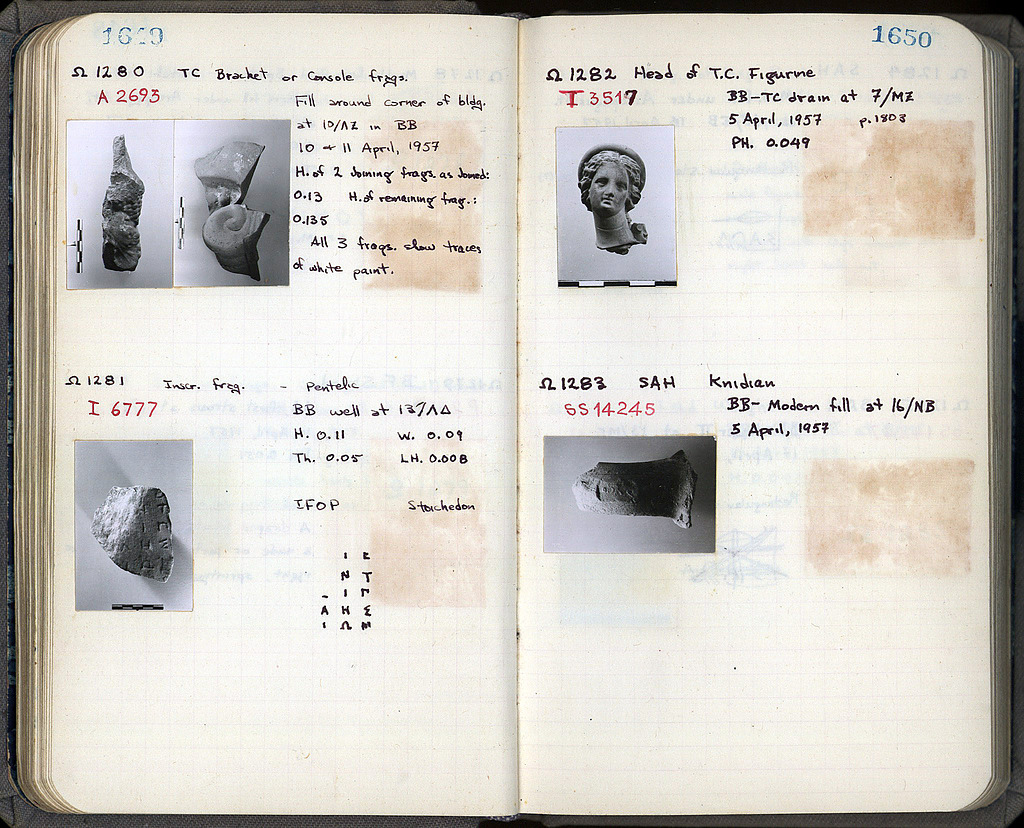 1649
Ω 1280 TC Bracket or Console frags.
A 2693
Fill around corner of bldg.
at 10/ΛΖ in BB
10 + 11 April, 1957
H. of 2 Joining frags. as Joined:
0.13 H. of remaining frag.:
0.135
All 3 frags. show traces
of white paint.
Ω 1281 Inscr. frag. - Pentelic
I 6777
BB well at 13/ΛΔ
H. 0.11 W. 0.09
Th. 0.05 LH. 0.008
IFOP Stoichedon
Ι Ε
Ν Τ
Ι Γ
Α Η Σ
Ι Ω Μ
1650
Ω 1282 Head of T.C. Figurine
T 3517
BB-TC drain at 7/ΜΖ
5 April, 1957 p. 1803
PH. 0.049
Ω 1283 SAH Knidian
SS 14245
BB- Modern fill at 16/NB
5 April, 1957